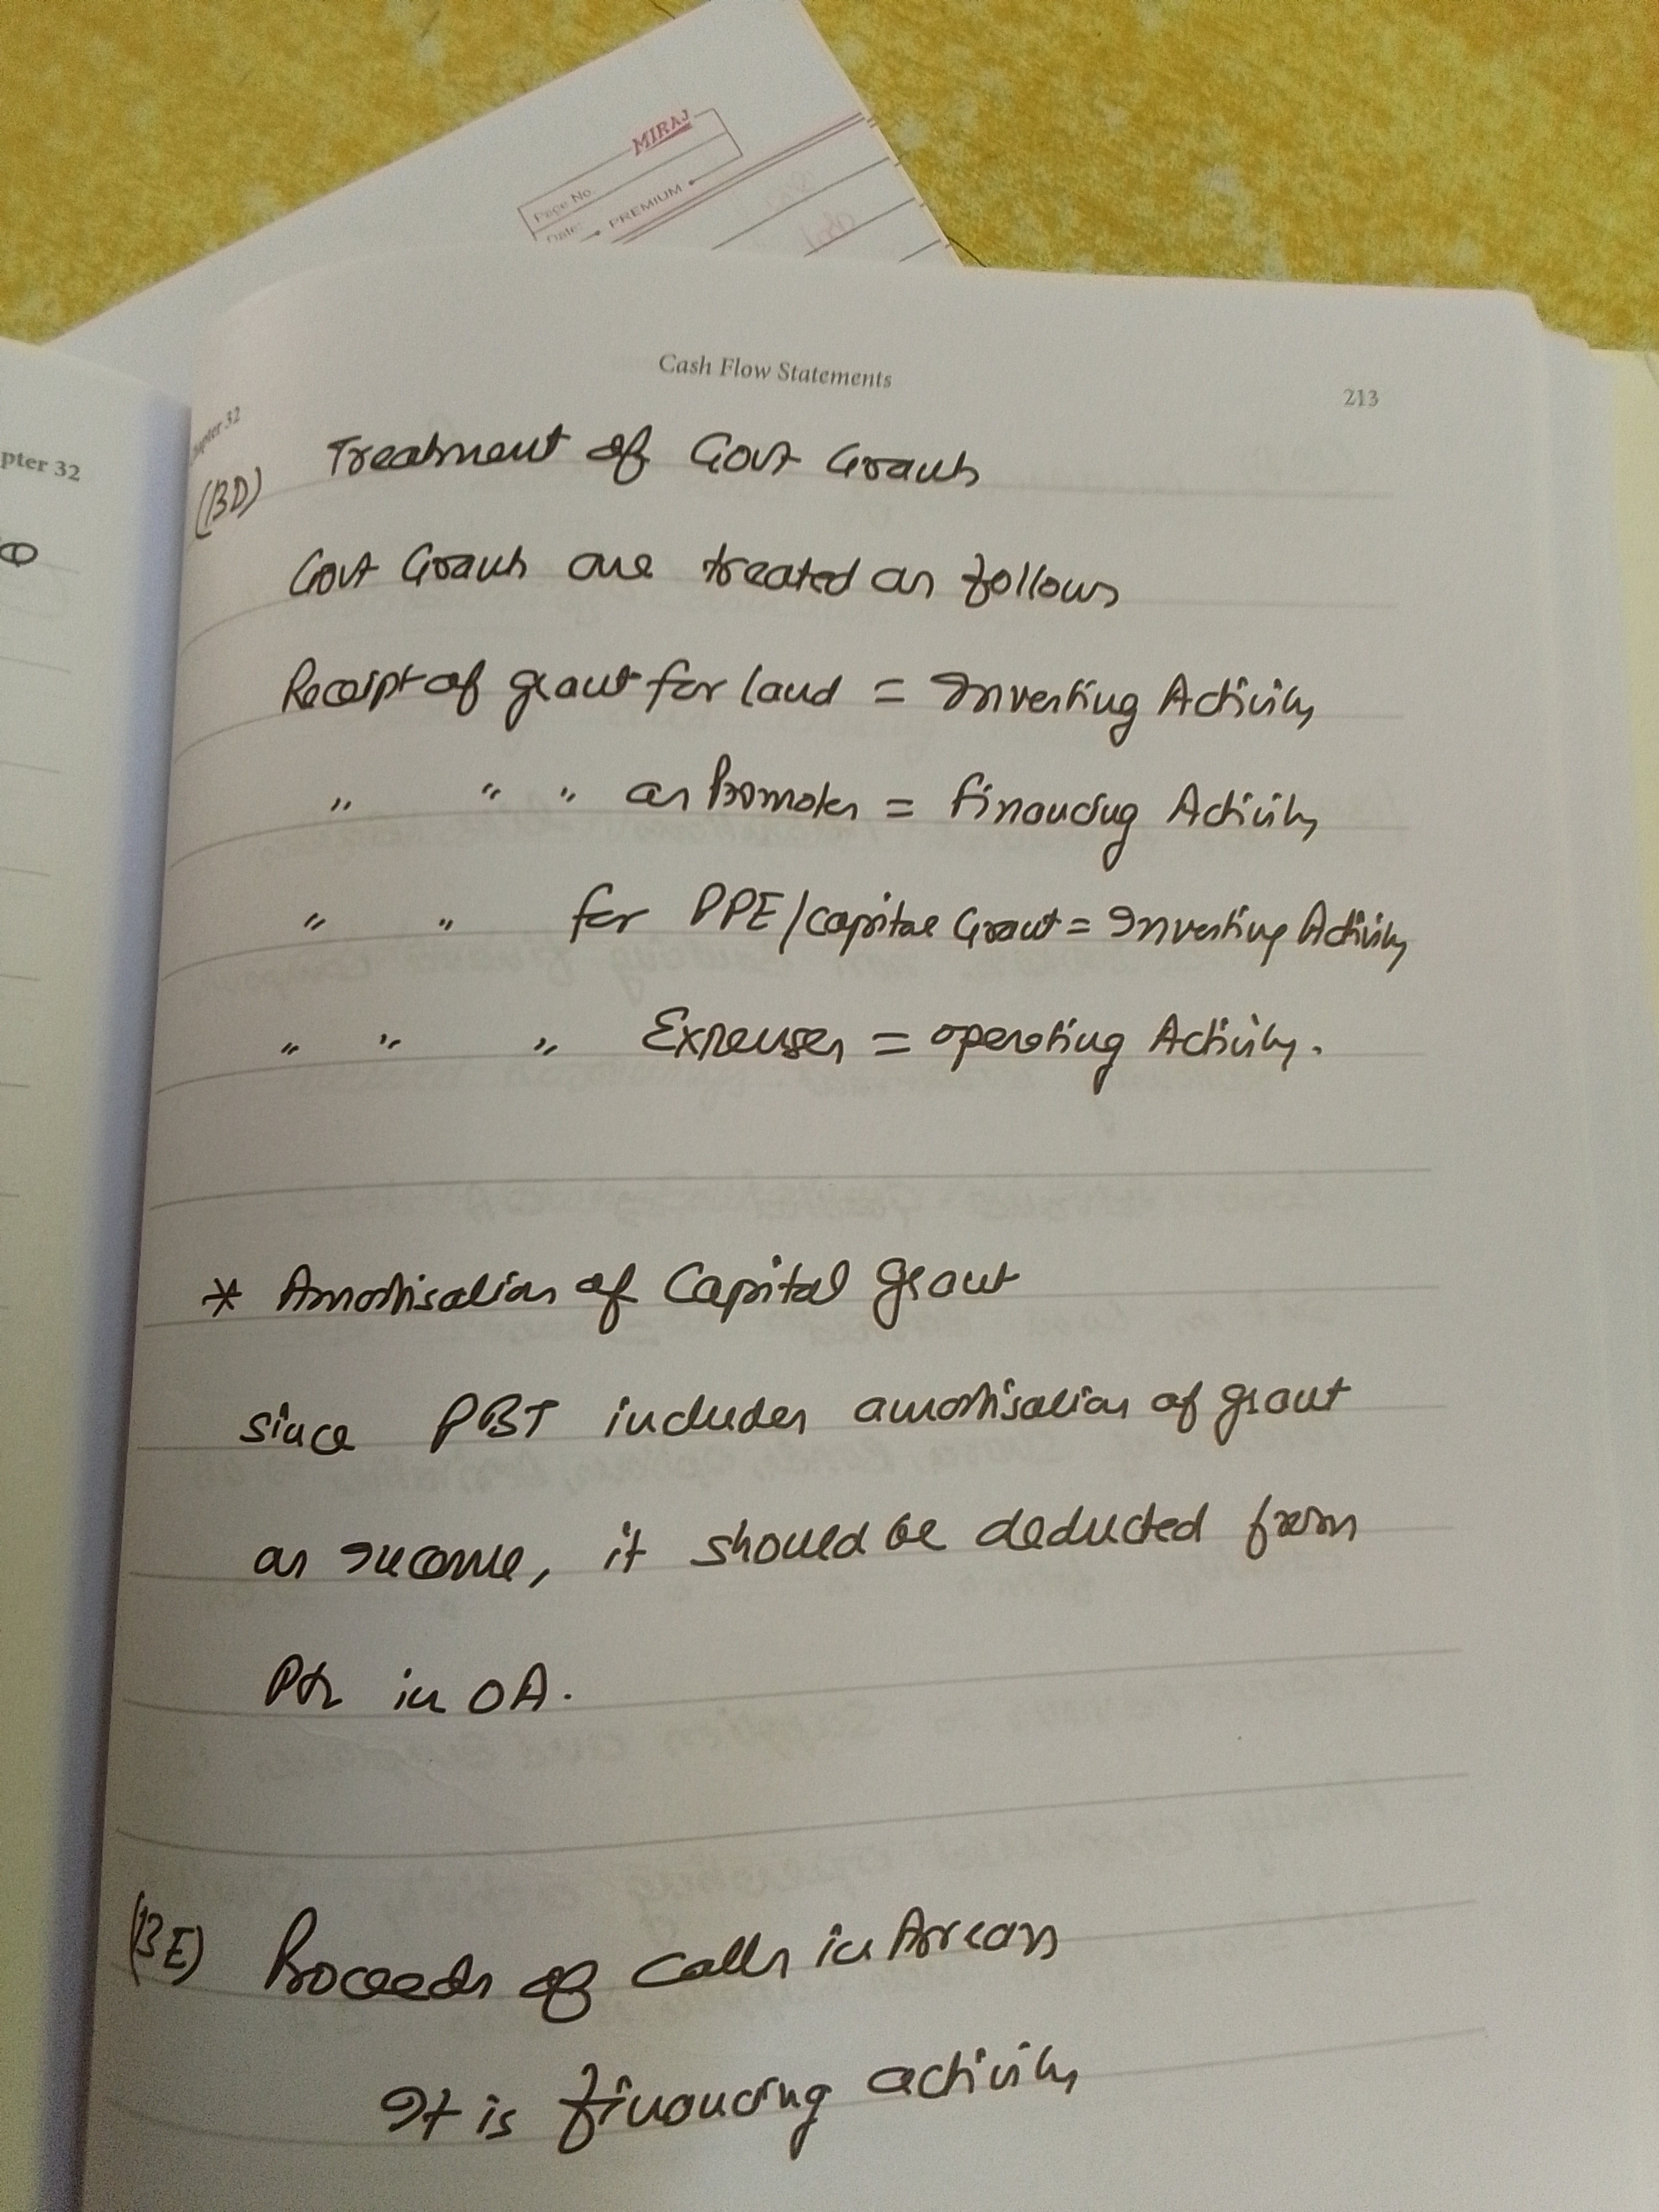 MIRAJ
Page No.
Date:
PREMIUM
Cash Flow Statements
213
pter 32
Chapter 32
(BD)
Treatment of Govt Grants
Govt Grants are treated as follows
Receipt of grant for land = Investing Activity
" " " as Promoter = Financing Activity
" " for PPE/Capital Grant = Investing Activity
" " " Expenses = operating Activity.
* Amortisation of Capital grant
since PBT includes amortisation of grant
as income, it should be deducted from
in OA.
(BE) Proceeds of calls in Arrears
It is financing activity